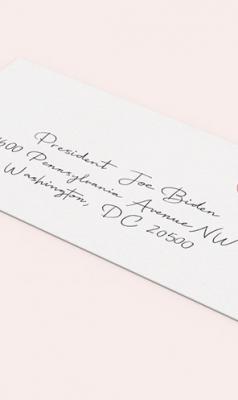 President Joe Biden
1600 Pennsylvania Avenue NW
Washington, DC 20500